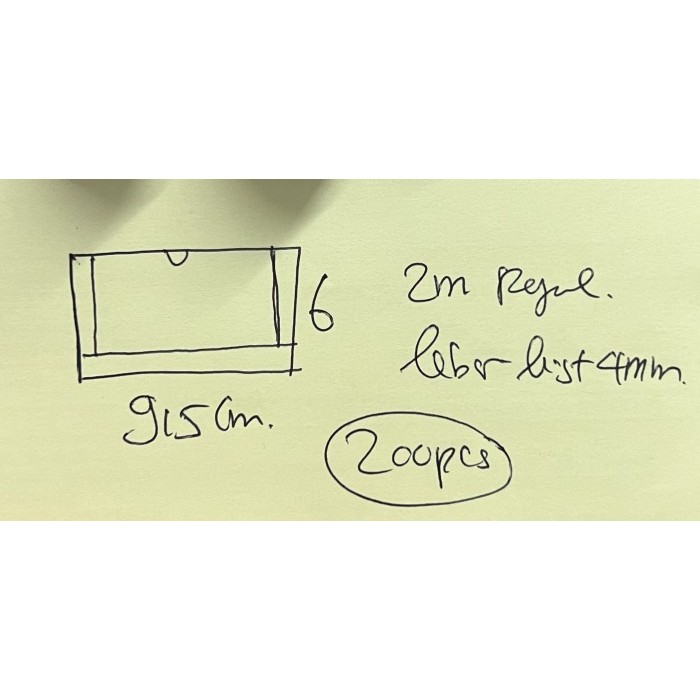 6
9,5 Cm.
2m Regul.
lebar list 4mm.
200pcs